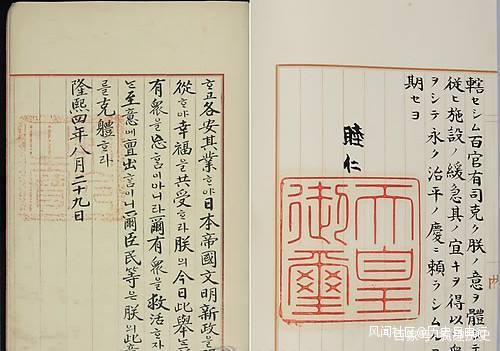 轄セシム百官有司克ク朕ノ意ヲ體
從ヒ施設ノ緩急其ノ宜キヲ得以テ衆
ヲシテ永ク治平ノ慶ニ頼ラシム
期セヨ
睦仁
天皇
御璽
ᄒᆞ고各安其業ᄒᆞ야日本帝國文明新政을
從ᄒᆞ야幸福을共受ᄒᆞ라朕의今日此擧는
有衆을忘홈이아니라爾有衆을救活ᄒᆞ자
는至意에亶出홈이니爾臣民等은朕의此意
를克體ᄒᆞ라
隆熙四年八月二十九日
风闻社区@历史